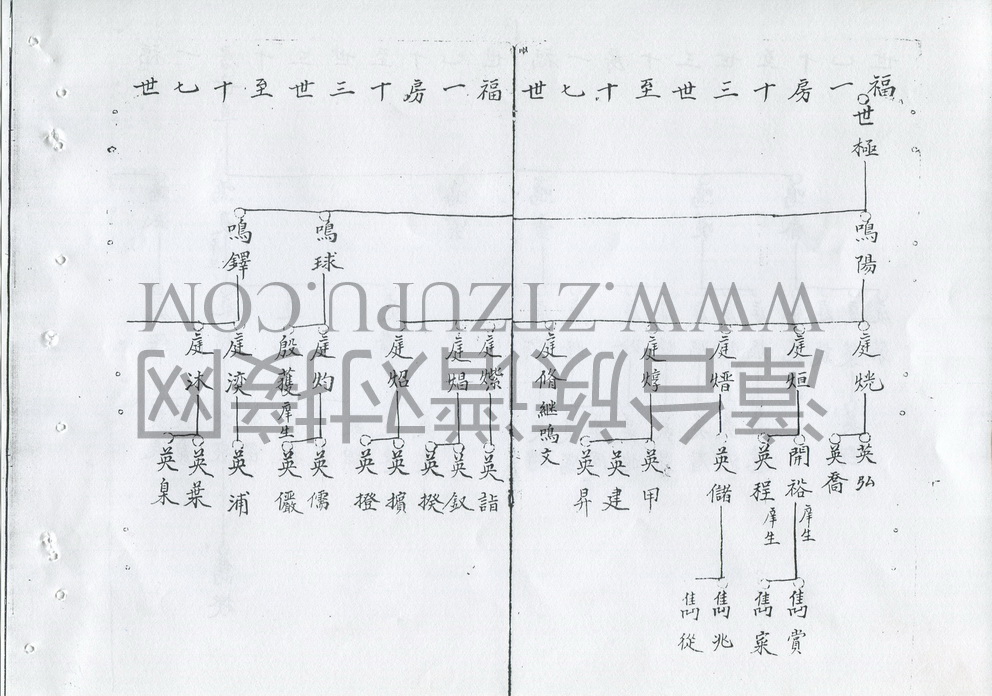 福一房十三世至十七世
福一房十三世至十七世
世極
鳴陽
鳴球
鳴鐸
庭烍
庭烜
庭熸
庭焞
庭脩 繼鳴文
庭燦
庭焻
庭炤
庭灼
殷獲 庠生
庭濙
庭沐
英弘
英喬
開裕 庠生
英程 庠生
英儲
英甲
英建
英昇
英詣
英釵
英揆
英擯
英撥
英儒
英儼
英浦
英葉
英臬
雋賞
雋寀
雋兆
雋從
WWW.ZTZUPU.COM
漳台族谱对接网